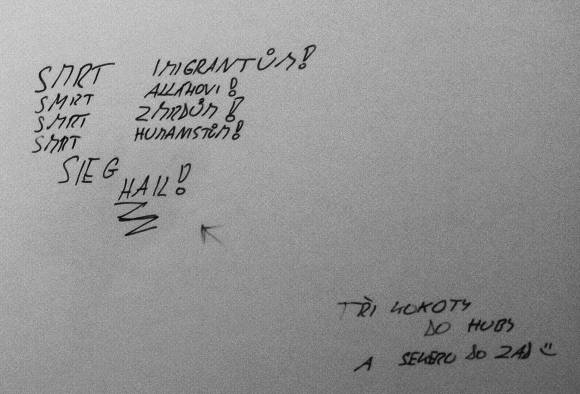 SMRT IMIGRANTŮM!
SMRT ALLAHOVI!
SMRT ZMRDŮM!
SMRT HUMANISTŮM!
SIEG
HAIL!
TŘI KOKOTY
DO HUBY
A SEKERU DO ZAD :)